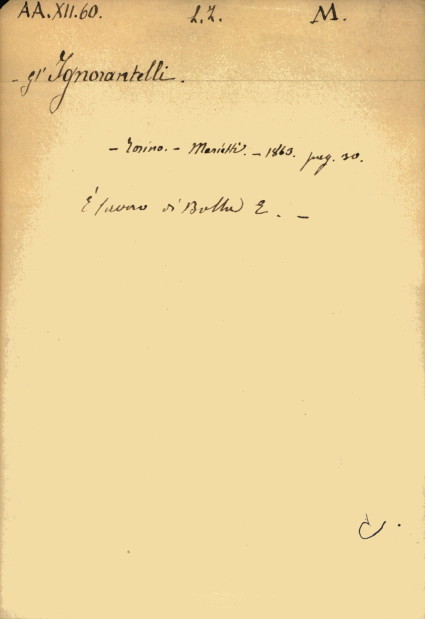 AA.XII.60. L.Z. M.
- gl' Ignorantelli.
- Torino. - Marietti. - 1863. pag. 30.
È lavoro di E. -
C.